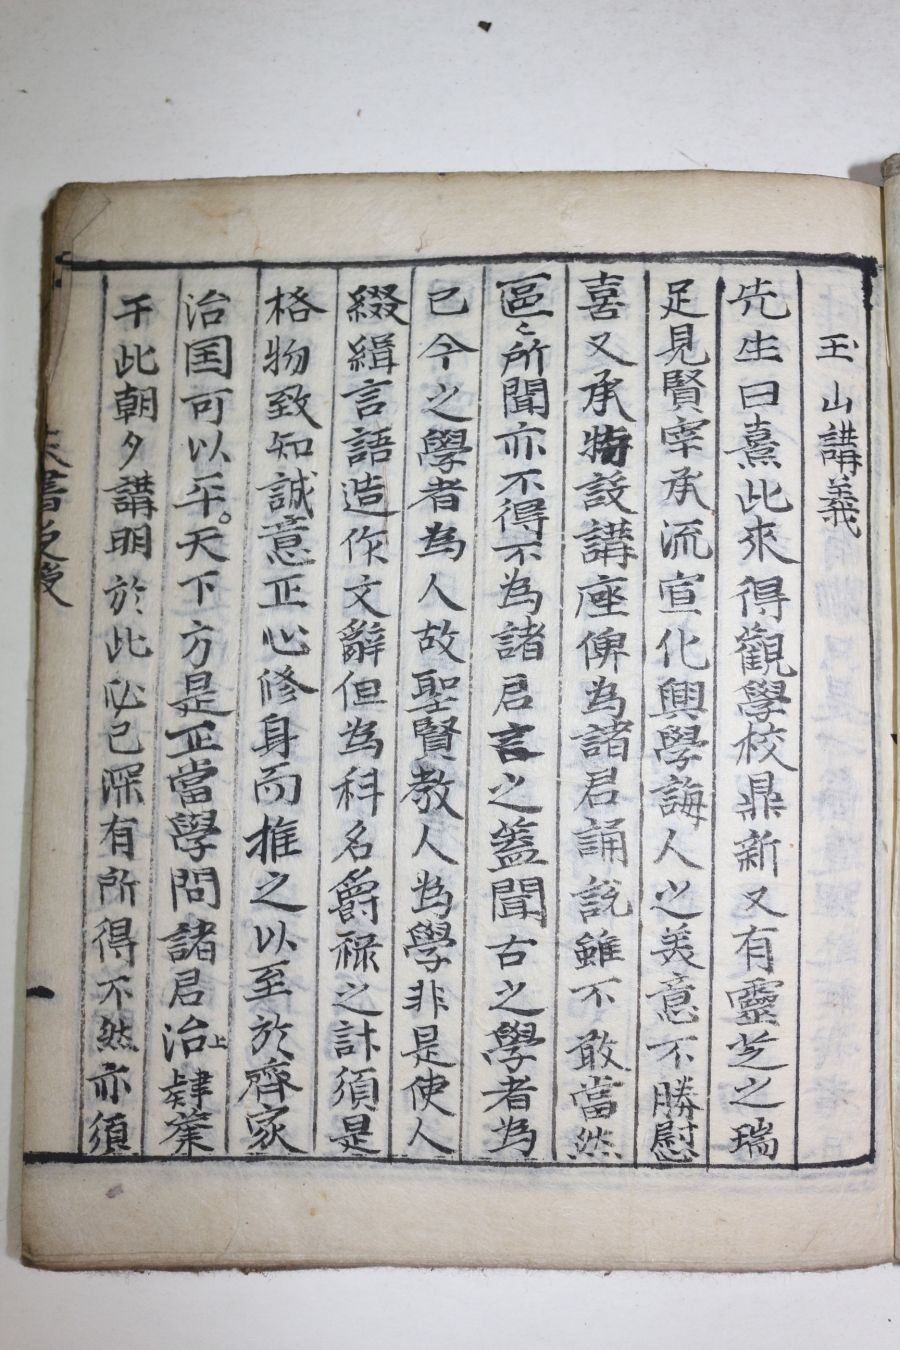 玉山講義
先生曰熹此來得觀學校鼎新又有靈芝之瑞
足見賢宰承流宣化興學誨人之美意不勝慰
喜又承特設講座俾為諸君誦說雖不敢當然
區〻所聞亦不得不為諸君言之蓋聞古之學者為
己今之學者為人故聖賢教人為學非是使人
綴緝言語造作文辭但為科名爵祿之計須是
格物致知誠意正心修身而推之以至於齊家
治国可以平。天下方是正當學問諸君治上肄業
于此朝夕講明於此必已深有所得不然亦須